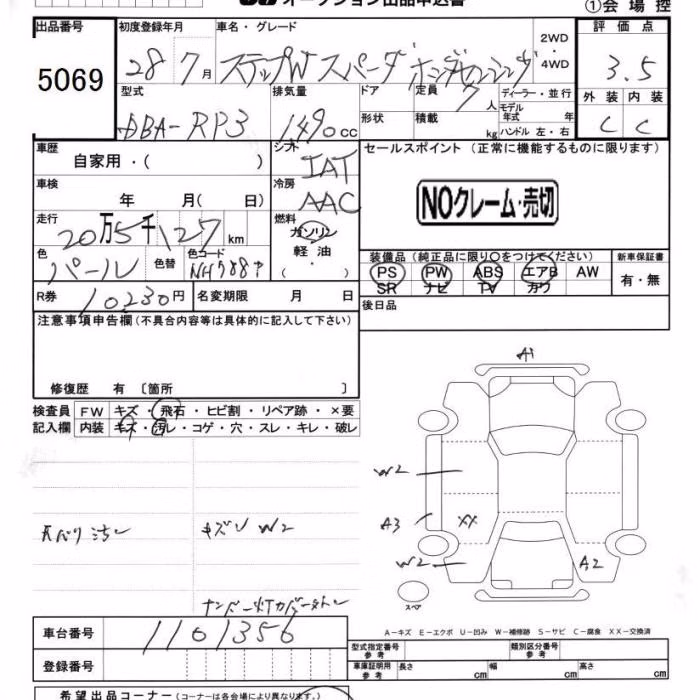 オークション出品申込書
①会場控
出品番号
5069
初度登録年月
28年7月
車名・グレード
ステップW スパーダ ホンダセンシング
2WD・4WD
評価点
3.5
型式
DBA-RP3
排気量
1490cc
ドア
形状
定員
7人
積載
kg
ディーラー・並行
モデル年式 年
ハンドル 左・右
外装 内装
C C
車歴
自家用・( )
シフト
IAT
セールスポイント(正常に機能するものに限ります)
NOクレーム・売切
車検
年 月( 日)
冷房
AAC
走行
20万5千127km
燃料
ガソリン
軽油
・( )
色
パール
色替
色コード
NH788P
装備品(純正品に限り○をつけてください)
PS PW ABS エアB AW
SR ナビ TV カワ
新車保証書
有・無
R券 10230円
名変期限 月 日
後日品
注意事項申告欄(不具合内容等は具体的に記入して下さい)
修復歴 有〔箇所 〕
検査員 FW キズ・飛石・ヒビ割・リペア跡・×要
記入欄 内装 キズ・汚レ・コゲ・穴・スレ・キレ・破レ
A1
W2
A3
XX
W2
A2
スペア
天バリ汚レ
キズレ W2
ナンバー灯カバー欠レ
A-キズ E-エクボ U-凹み W-補修跡 S-サビ C-腐食 XX-交換済
車台番号
1101356
登録番号
型式指定番号 参考
類別区分番号 参考
車庫証明用 参考
長さ cm
幅 cm
高さ cm
希望出品コーナー(コーナーは各会場により異なります)